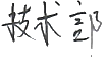 技术部